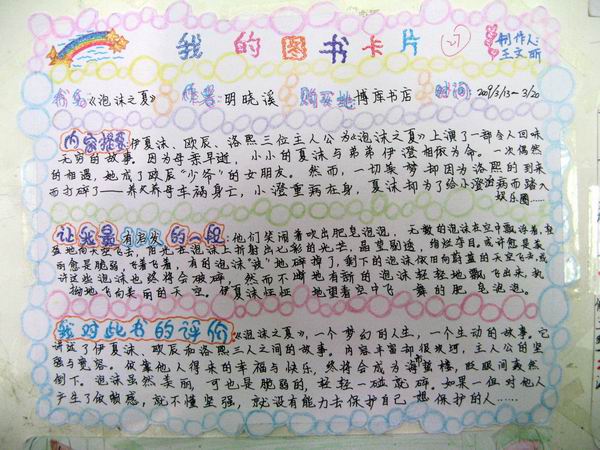 我的图书卡片
制作人:
王文昕
书名:《泡沫之夏》 作者:明晓溪 购买地:博库书店 时间:2009/3/13~3/20
内容提要:伊夏沫、欧辰、洛熙三位主人公为《泡沫之夏》上演了一部令人回味
无穷的故事。因为母亲早逝,小小的夏沫与弟弟伊澄相依为命。一次偶然
的相遇,她成了欧辰“少爷”的女朋友。然而,一切美梦却因为洛熙的到来
而打碎了——养父养母车祸身亡,小澄重病在身,夏沫却为了给小澄治病而踏入
娱乐圈……
让我最有启发的一段:他们笑闹着吹出肥皂泡泡,无数的泡沫在空中飘浮着,轻
盈地向天空飞去,阳光在泡沫上折射出七彩的光芒,晶莹剔透,绚烂夺目,或许愈是美
丽愈是脆弱,飞着飞着,有的泡沫“波”地碎掉了,剩下的泡沫依旧向蔚蓝的天空飞去,或
许这些泡沫也终将会破碎,然而不断地有新的泡沫轻轻地飘飞出来,执
拗地飞向美丽的天空。伊夏沫怔怔地望着空中飞舞的肥皂泡泡。
我对此书的评价:《泡沫之夏》,一个梦幻的人生,一个生动的故事。它
讲述了伊夏沫、欧辰和洛熙三人之间的故事。内容丰富却很坎坷,主人公的坚
强与宽容。依靠他人得来的幸福与快乐,终将会成为海市蜃楼,眨眼间轰然
倒下。泡沫虽然美丽,可也是脆弱的,轻轻一碰就碎,如果一旦对他人
产生了依赖感,就不懂坚强,就没有能力去保护自己想保护的人……